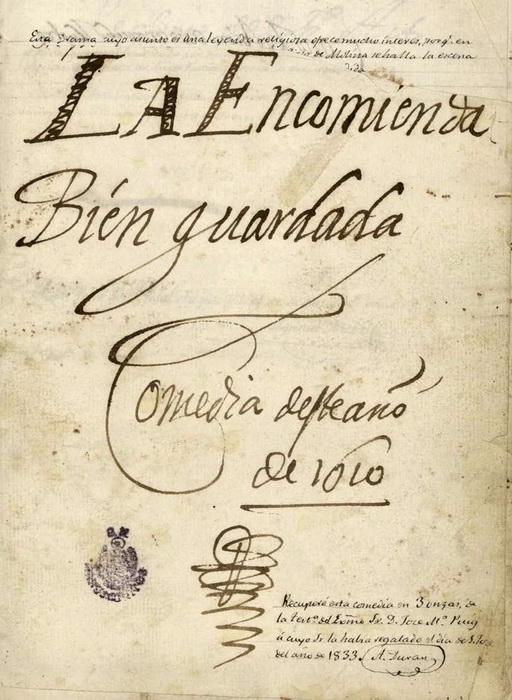 Este Drama cuyo asunto es una leyenda religiosa ofrece mucho interes, porq.e en
de Molina se halla la escena
LA Encomienda
Bien guardada
Comedia desteaño
de 1610
Recuperé esta comedia en 3 onzas, de
la test.a del Exmo Sr. D. Jose M.a Puig
á cuyo Sr la habia regalado el dia de S. Jose
del año de 1833. A. Duran